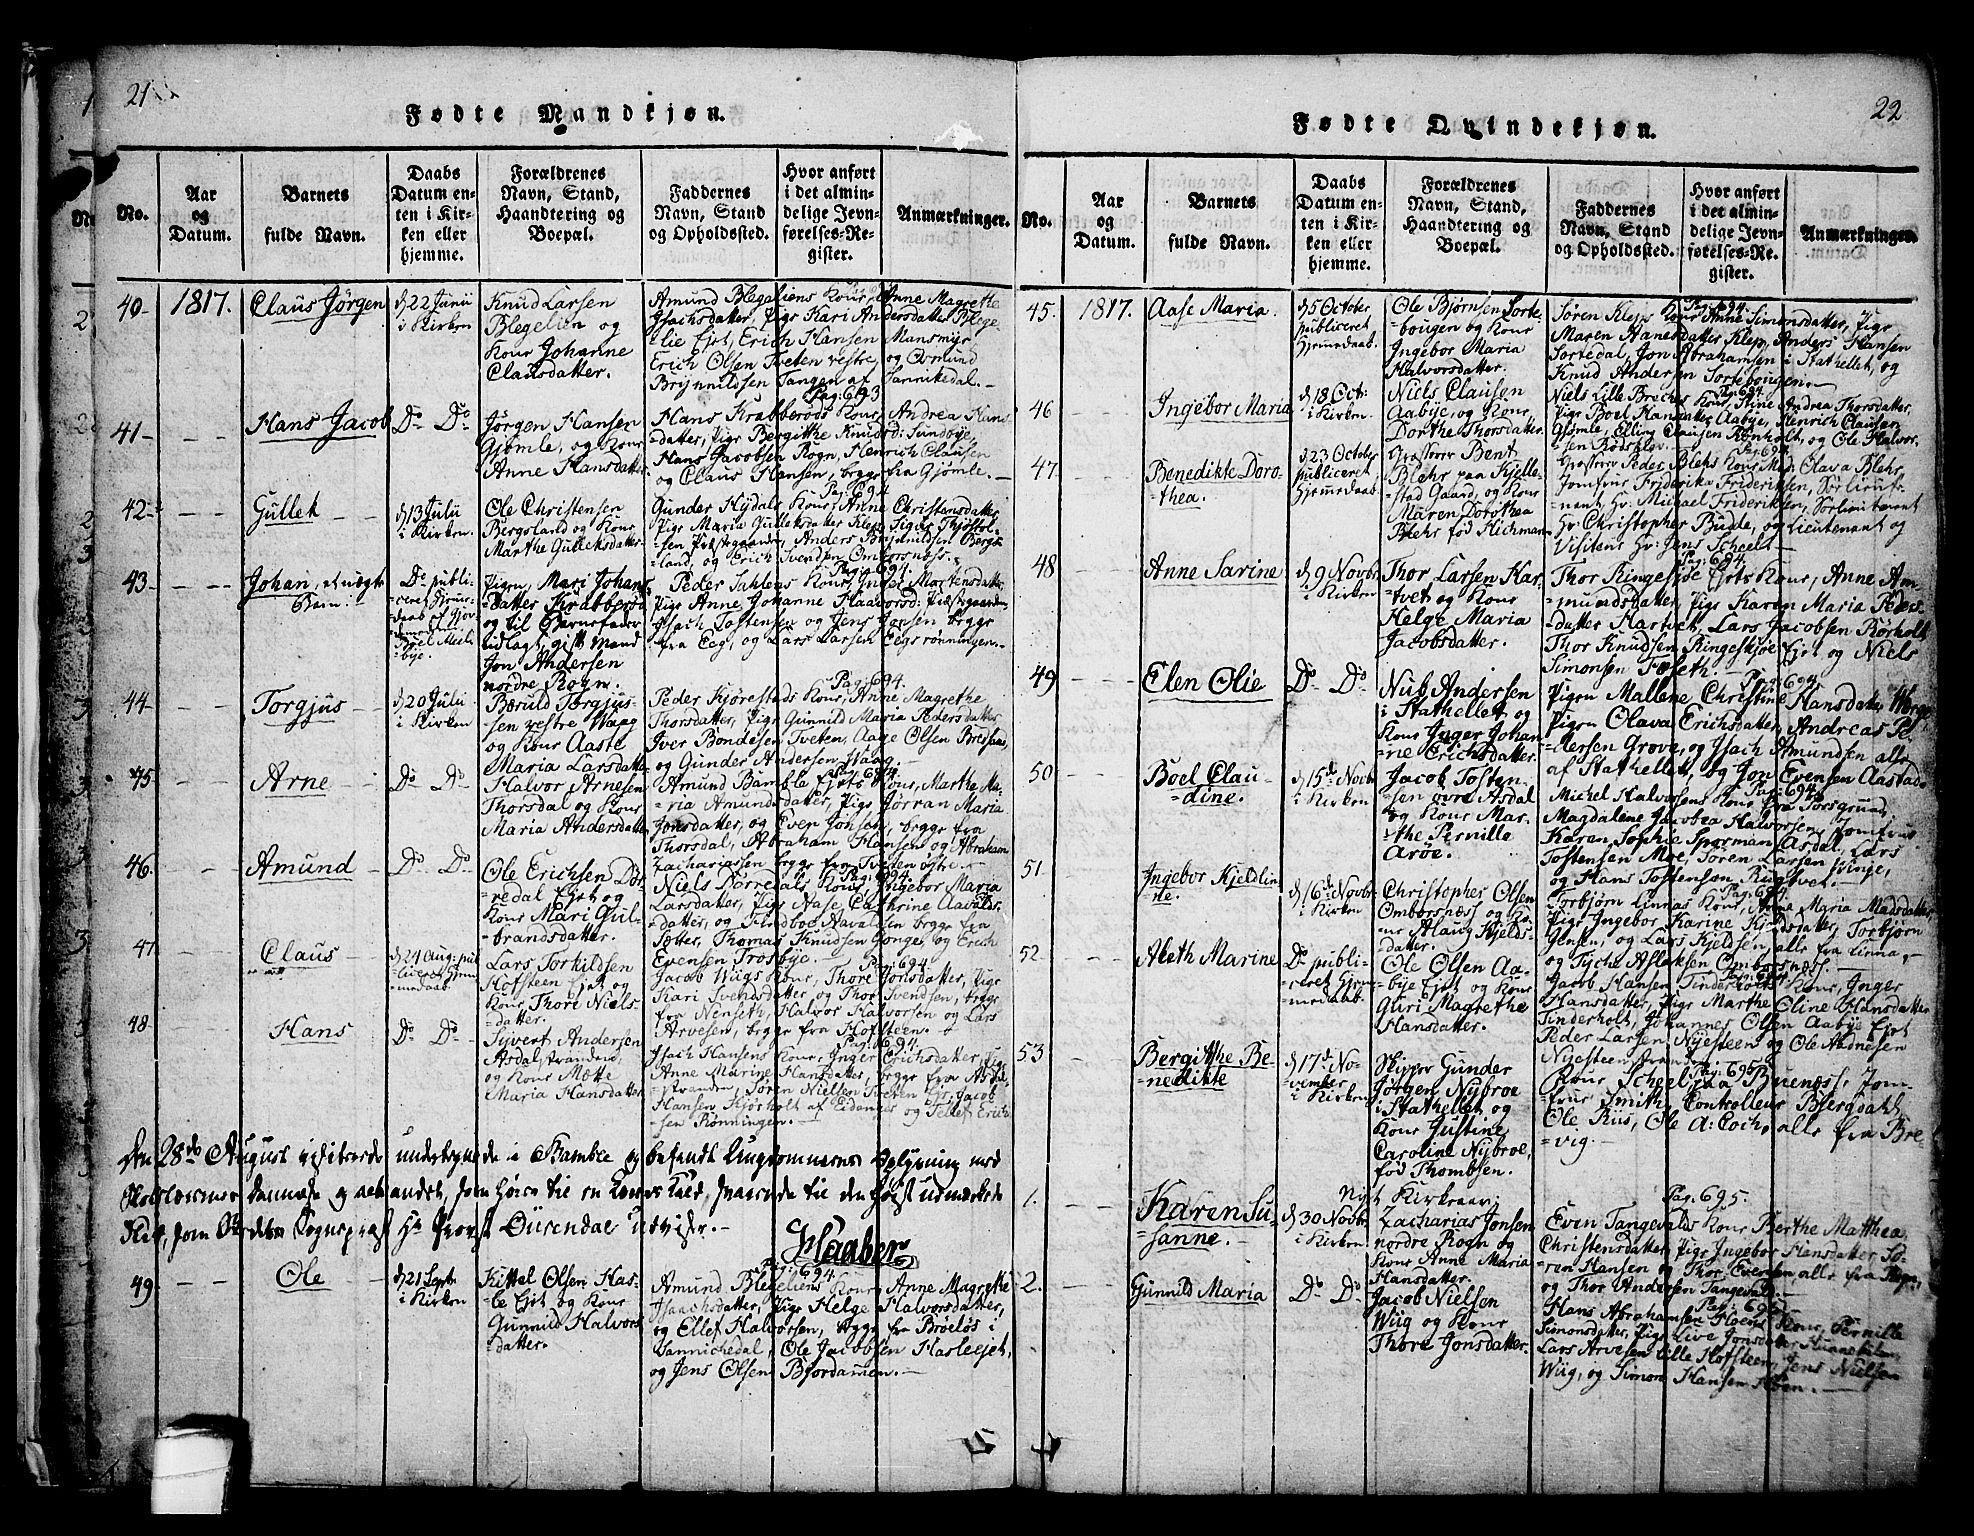 21
Fødte Mandkjøn.
No.
Aar og Datum.
Barnets fulde Navn.
Daabs Datum enten i Kirken eller hjemme.
Forældrenes Navn, Stand, Haandtering og Boepæl.
Faddernes Navn, Stand og Opholdssted.
Hvor anført i det almindelige Jevnførelses-Register.
Anmærkninger.
40
1817.
Claus Jörgen
d 22 Junii
i Kirken
Knud Larsen
Blegelien og
Kone Johanne
Clausdatter.
Amund Blegeliens Kone, Anne Magrethe
Isachsdatter, Pige Kari Andersdatter Blege
lie Ejet, Erich Hansen Mansmyr
Erich Olsen Tveten vestre, og Osmund
Brynnildsen Tangen af Sannikedal.
Pag: 693
41
Hans Jacob
Do Do
Jörgen Hansen
Gjömle, og Kone
Anne Hansdatter
Hans Krabberöds Kone, Andrea Hans
datter, Pige Bergitthe Knudsd: Sundbye,
Hans Jacobsen Rogn, Henrich Clausen
og Claus Hansen, begge fra Gjömle.
Pag: 694
42
Gullek
d 13 Julii
i Kirken
Ole Christensen
Bergsland og Kone
Marthe Gulleksdatter
Gunder Hydals Kone, Anne Christensdatter
Pige Maria Gulleksdatter Klep, Sigur Thjostol-
sen Præstegaarden, Anders Brynnildsen Bergs-
land, og Erich Svendsen Ombörsnæss.
Pag: 694
43
Johan, et uægte
Barn.
Do publi-
ceret hjemme
daab af
bye.
Pigen Mari Johans
datter Krabberöd
og til Barnefader
udlagt, gift Mand
Jon Andersen
nordre Rogn.
Peder Sahlens Kone, Inger Mortensdatter
Pige Anne Johanne Haavorsd: Præstegaarden
Isach Tostensen og Jens Jonsen begge
fra Eeg, og Lars Larsen Eegsrönningen.
Pag: 694
44
Torgjus
d 20 Julii
i Kirken
Bæruld Torgjus-
sen vestre Waag
og Kone Aaste
Maria Larsdatter
Peder Kjörestads Kone, Anne Magrethe
Thorsdatter, Pige Gunnild Maria Pedersdatter
Iver Bondesen Tveten, Aage Olsen
og Gunder Andersen Waag.
Pag: 694
45
Arne
Do Do
Halvor Arnesen
Thorsdal og Kone
Maria Andersdatter
Amund Bamble Ejets Kone, Marthe Ma-
ria Amundsdatter, Pige Jörran Maria
Jonsdatter, og Even Jonsen, begge fra
Thorsdal, Abraham Hansen og Abraham
Zachariassen begge fra Tveten östre.
Pag: 694
46
Amund
Do Do
Ole Erichsen Dör-
redal Ejet og
Kone Mari Gul-
brandsdatter.
Niels Dörredals Kone, Ingebor Maria
Larsdatter, Pige Aase Cathrine Aavalds-
datter, og Findboe Aavaldsen begge fra
Totter, Thomas Knudsen Gonge, og Erich
Evensen Trosbye.
Pag: 694
47
Claus
d 24 Aug: pub
liceret hjem
medaab
Lars Torkildsen
Hofsteen Ejet og
Kone Thore Niels-
datter.
Jacob Wiigs Kone, Thore Jonsdatter, Pige
Kari Svendsdatter, og Thor Svendsen, begge
fra Nenseth, Halvor Halvorsen og Lars
Arvesen, begge fra Hofsteen.
Pag: 694
48
Hans
Do Do
Syvert Andersen
Asdalstranden,
og Kone Mætte
Maria Hansdatter
Isach Hansens Kone, Inger Erichsdatter, Pige
Anne Marine Hansdatter, begge fra Asdal-
stranden, Sören Nielsen Tveten Ejet, Jacob
Hansen Kjörholt af Eidanes og Tellef Erich-
sen Rønningen.
Den 28de August visiterede undertegnede i Bamble og befandt Ungdommenes Oplysning med
Skolelærernes
Flid, som Stedets Sognepræst Hr Provst Dürendal udviser.
Pag: 694
49
Ole
d 21 Sept.
i Kirken
Kittel Olsen Has-
le Ejet og Kone
Gunnild Halvors
datter.
Amund Blegeliens Kone, Anne Magrethe
Isachsdatter, Pige Helge Halvorsdatter,
og Ellef Halvorsen, begge fra Bröelös i
Sannichedal, Ole Jacobsen Hasleejet,
og Jens Olsen Bjordamen.
22
Fødte Qvindekjøn.
No.
Aar og Datum.
Barnets fulde Navn.
Daabs Datum enten i Kirken eller hjemme.
Forældrenes Navn, Stand, Haandtering og Boepæl.
Faddernes Navn, Stand og Opholdssted.
Hvor anført i det almindelige Jevnførelses-Register.
Anmærkninger.
45.
1817.
Aase Maria.
d 5 October
publiceret
hjemedaab.
Ole Björnsen Sorte-
bougen og Kone
Ingebor Maria
Halvorsdatter.
Pag: 694.
Sören Kleps Kone Anne Simonsdatter, Pige
Maren Hansdatter Klep, Anders Hansen
Sortedal, Jon Abrahamsen i Stathellet, og
Knud Andersen Sortebougen.
Pag: 694
46
Ingebor Maria
d 18 Oct:
i Kirken
Niels Clausen
Aabye, og Kone,
Dorthe Thorsdatter.
Niels Lille Brækes Kone, Stine Andrea Thorsdatter,
Pige Boel Hansdatter Aabye, Henrich Clausen
Gjömle, Elling Clausen Rönholt, og Ole Halvor-
sen Rödskløv.
Pag: 694
47
Benedikte Doro-
thea.
d 23 October
publiceret
hjemedaab
Bent
Blehr paa Kjelle-
stad Gaard, og Kone
Maren Dorothea
Blehr fød Hichmann
Peder Blehs Kone Mad: Olava Blehr
Jomfrue Friderika Frideriksen, Sörlieut-
nant Hr. Michael Frideriksen, Sorlieutenant
Hr. Christopher Budde, og Lieutenant og
Visitens Hr: Jens Scheel.
Pag: 694
48
Anne Sarine
d 9 Novbr.
i Kirken.
Thor Larsen Har-
tvet og Kone
Helge Maria
Jacobsdatter.
Thor Ringeskjöe Ejets Kone, Anne Am-
mundsdatter, Pige Karen Maria Peders-
datter Hartvet, Lars Jacobsen Rörholt
Thor Knudsen Ringeskjöe Ejet og Niels
Simonsen Foseth.
Pag: 694
49
Elen Olie
Do Do
Nub Andersen
i Stathellet og
Kone Inger Johan
ne Erichsdatter.
Pigen Mallene Christine Hansdatter
Pigen Olava Erichsdatter, Andreas Pe-
dersen Grove, og Isach Amundsen alle
af Stathellet, og Jon Evensen Aastad.
Pag: 694
50
Boel Clau-
dine.
d 15de Novbr
i Kirken
Jacob Tosten-
sen övre Asdal
og Kone Mar-
the Pernille
Aröe.
Michel Halvorsens Kone fra Forsgrund,
Magdalene Jacobea Halvorsen, Jomfrue
Karen Sophie Spörman Asdal, Lars
Tostensen Moe, Sören Larsen Svinje,
og Hans Tostensen Rugtvet.
Pag: 694
51
Ingebor Kjeldin
ne.
d 16de Novbr
i Kirken
Christopher Olsen
Ombörsnæs og Ko-
ne Aslaug Kjelds-
datter.
Torbjörn Linnas Kone, Anna Maria Madsdatter
Pige Ingebor Karine Kjeldsdatter, Torbjörn
Gensen, og Lars Kjeldsen, alle fra Linna,
og Tyche Aslaksen Ombörsnæs.
Pag: 694
52
Aleth Marine
Do publi-
ceret hjem-
medaab
Ole Olsen Aa-
bye Ejet og Kone
Guri Magrethe
Hansdatter.
Jacob Hansen Tinderholts Kone, Inger
Hansdatter, Pige Marthe Eline Hansdatter
Tinderholt, Johannes Olsen Aabye Ejet
Peder Larsen Nyesteen og Ole Aadnesen
Nyesteen stranden.
Pag: 695
53
Bergitthe Be-
nedikte
d 17de No-
vember
i Kirken
Skipper Gunder
Jörgen Nybroe
i Stathellet og
Kone Justine
Caroline Nybroe,
fød Thombsen.
Kone Scheel paa Buenæs, Jom-
frue Smith, Controlleur Bjergdahl
Ole Riis, Ole A: Coch, alle fra Bre-
vig.
Nyt Kirkeaar;
Pag: 695.
1.
Karen Su-
sanne.
d 30 Novbr
i Kirken
Zacharias Jonsen
nordre Rogn og
Kone Anne Maria
Hansdatter.
Even Tangevalds Kone Berthe Matthea
Christensdatter, Pige Ingebor Hansdatter, Sö-
ren Hansen og Thor Evensen alle fra Rogn,
og Thor Andersen Tangevald.
Pag: 695
2.
Gunnild Maria
Do Do
Jacob Nielsen
Wiig og Kone
Thore Jonsdatter.
Hans Abrahamsen Hoens Kone, Pernille
Simonsdatter, Pige Live Jonsdatter
Lars Arvesen Lille Hofsteen, Jens Nielsen
Wiig, og Simon Hansen Hoen.